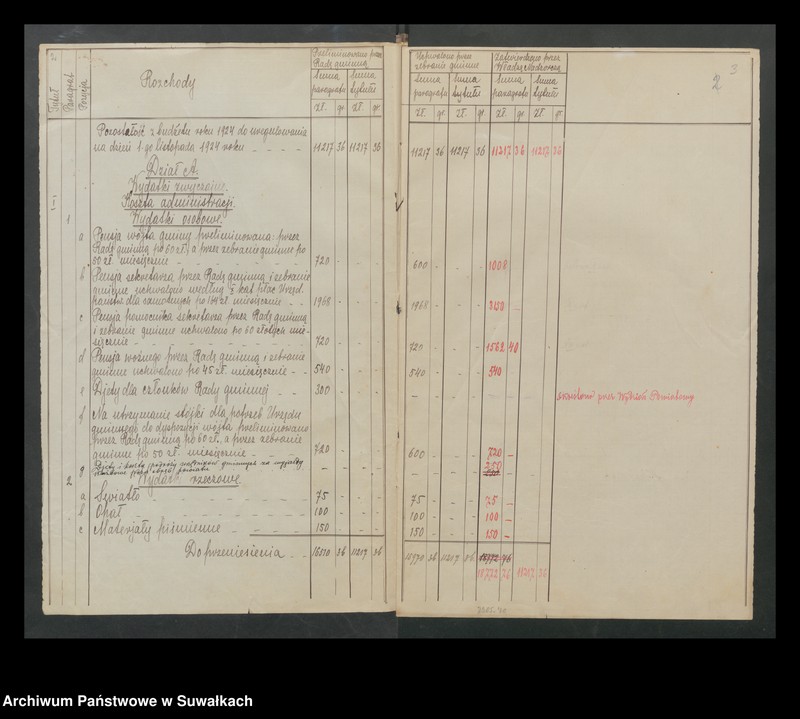 Tytuł
Paragraf
Pozycja
Rozchody
Preliminowano przez
Radę gminną
Suma
paragrafu
Suma
tytułu
zł. gr. zł. gr.
Uchwalono przez
zebranie gminne
Suma
paragrafu
Suma
tytułu
zł. gr. zł. gr.
Zatwierdzono przez
Władzę Nadzorczą
Suma
paragrafu
Suma
tytułu
zł. gr. zł. gr.
3
2
Pozostałość z budżetu roku 1924 do uregulowania
na dzień 1-go listopada 1924 roku - - - - 11217 36 11217 36 11217 36 11217 36 11217 36 11217 36
Dział A.
Wydatki zwyczajne.
I
Koszta administracji.
1 Wydatki osobowe.
a Pensja wójta gminy preliminowana: przez
Radę gminną po 60 zł., a przez zebranie gminne po
50 zł. miesięcznie - - - 720 - - - 600 - - - 1008
b Pensja sekretarza przez Radę gminną i zebranie
gminne uchwalono według kat. płac Urzęd.
państw. dla samotnych po 164 zł. miesięcznie - - 1968 - - - 1968 - - - 3150 -
c Pensja pomocnika sekretarza przez Radę gminną
i zebranie gminne uchwalono po 60 złotych mie-
sięcznie - - - 720 - - - 720 - - - 1562 40
d Pensja woźnego przez Radę gminną i zebranie
gminne uchwalono po 45 zł. miesięcznie - - 540 - - - 540 - - - 540
e Djety dla członków Rady gminnej - - 300 - - - - - - - skreślono przez Wydział Powiatowy
f Na utrzymanie stójki dla potrzeb Urzędu
gminnego do dyspozycji wójta preliminowano
przez Radę gminną po 60 zł., a przez zebranie
gminne po 50 zł. miesięcznie - - - 720 - - - 600 - - - 720 -
g Djety i koszty podróży gminnych za wyjazdy
350
2 Wydatki rzeczowe.
a Światło - - - 75 - - - 75 - - - 75 -
b Opał - - - 100 - - - 100 - - - 100 -
c Materjały piśmienne - - - 150 - - - 150 - - - 150 -
Do przeniesienia - - 36 11217 36 36 11217 36
18772 76 11217 36